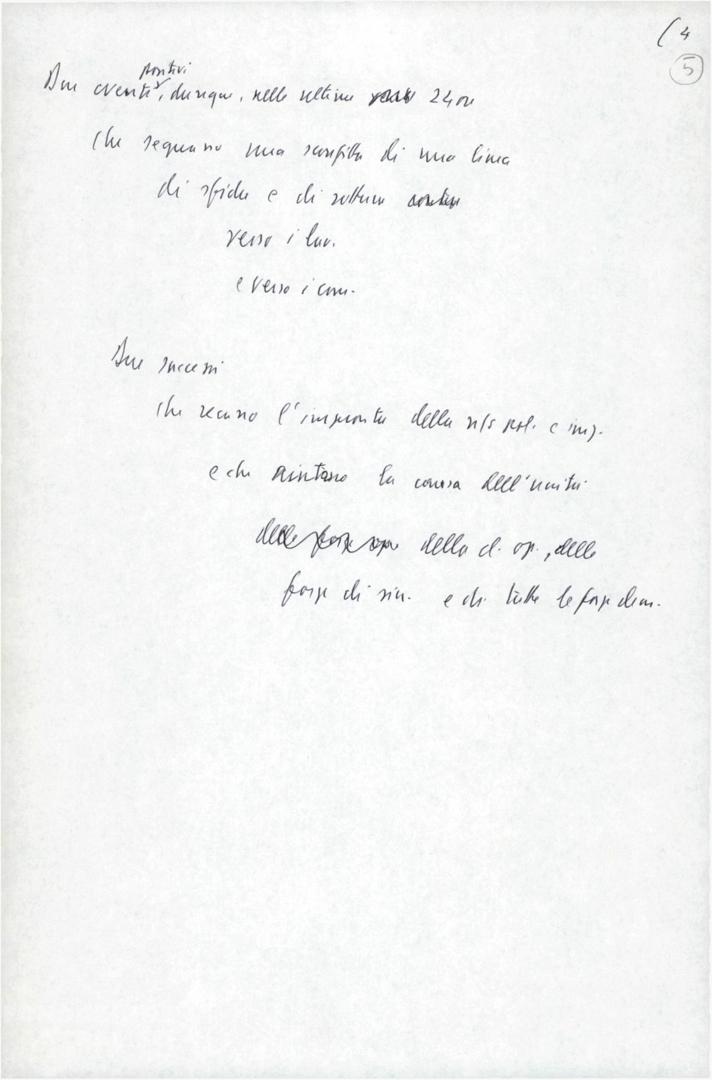 ( 4
5
positivi
Due eventi, dunque, nelle ultime 24 ore
che segnano una sconfitta di una linea
di sfida e di rottura
verso i lav.
e verso i com.
Due successi
che recano l'impronta della n/s pol. e inz.
e che aiutano la causa dell'unità
delle forze della cl. op., delle
forze di sin. e di tutte le forze dem.